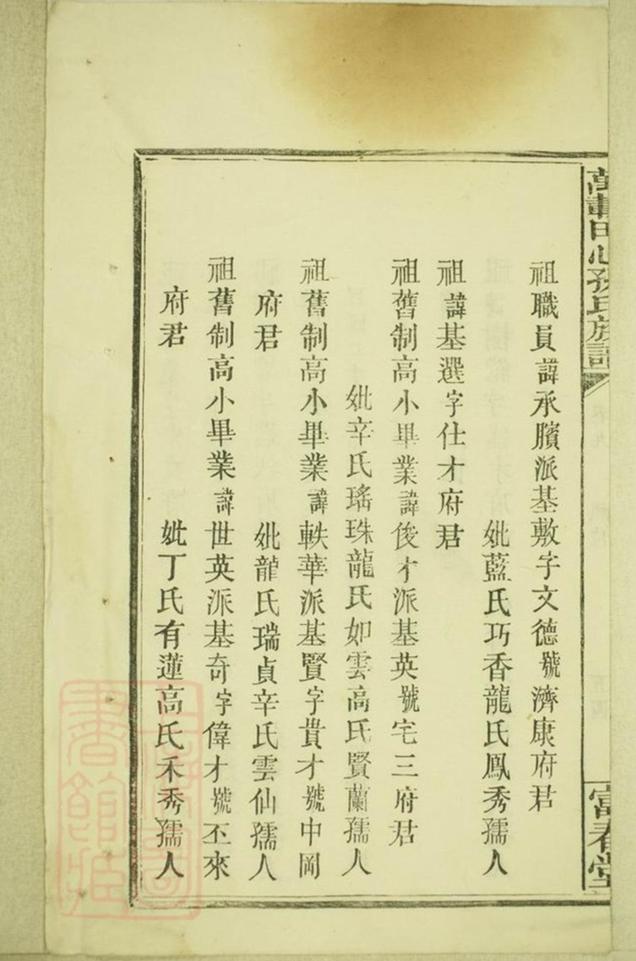 萬載田心孫氏族譜
富春堂
祖職員諱承臏派基敷字文德號濟康府君
妣藍氏巧香龍氏鳳秀孺人
祖諱基選字仕才府君
祖舊制高小畢業諱俊才派基英號宅三府君
妣辛氏瑤珠龍氏如雲高氏賢蘭孺人
祖舊制高小畢業諱軼華派基賢字貴才號中岡
府君
妣龍氏瑞貞辛氏雲仙孺人
祖舊制高小畢業諱世英派基奇字偉才號丕來
府君
妣丁氏有蓮高氏禾秀孺人